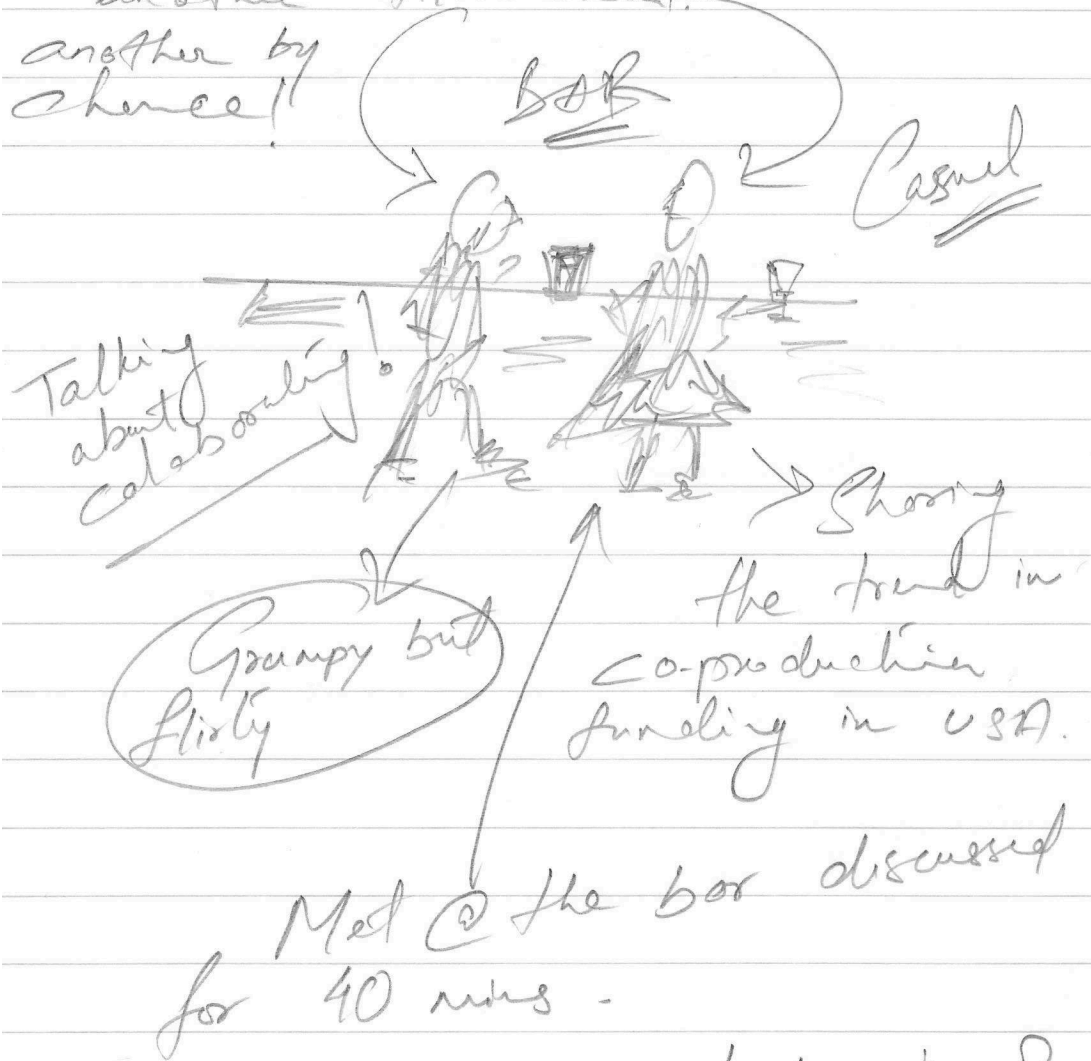 another by
chance!
BAR
Casual
Talking
about
colaborating!
Sharing
the trend in
co-production
funding in USA.
Grumpy but
flirty
Met @ the bar discussed
for 40 mins -